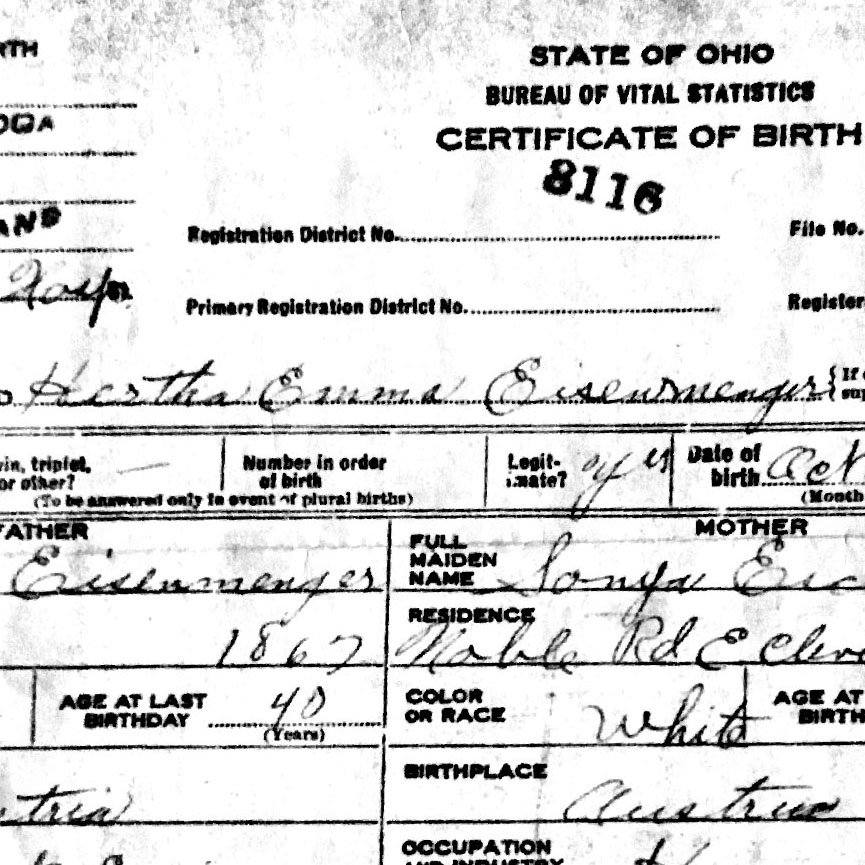 RTH
STATE OF OHIO
BUREAU OF VITAL STATISTICS
OGA
CERTIFICATE OF BIRTH
8116
AND
Registration District No.
File No.
Hosp.
Primary Registration District No.
Register
Hertha Emma Eisenmenger
{If
sup
in, triplet,
or other? —
Number in order
of birth
Legit-
imate? yes
Date of
birth Oct
(To be answered only in event of plural births)
(Month
FATHER
MOTHER
Eisenmenger
FULL
MAIDEN
NAME Sonya
RESIDENCE
1867
Noble Rd E Cleve
AGE AT LAST
BIRTHDAY 40
(Years)
COLOR
OR RACE White
AGE AT
BIRTH
BIRTHPLACE
stria
Austria
OCCUPATION
AND INDUSTRY